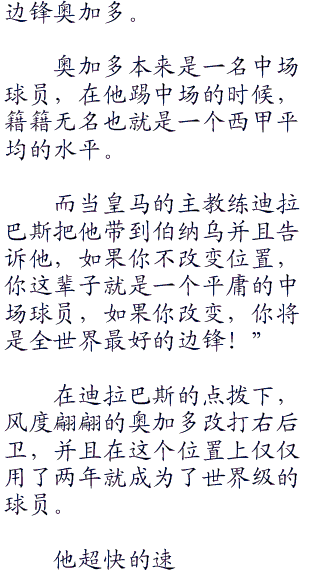 边锋奥加多。
奥加多本来是一名中场
球员，在他踢中场的时候，
籍籍无名也就是一个西甲平
均的水平。
而当皇马的主教练迪拉
巴斯把他带到伯纳乌并且告
诉他，如果你不改变位置，
你这辈子就是一个平庸的中
场球员，如果你改变，你将
是全世界最好的边锋！”
在迪拉巴斯的点拨下，
风度翩翩的奥加多改打右后
卫，并且在这个位置上仅仅
用了两年就成为了世界级的
球员。
他超快的速